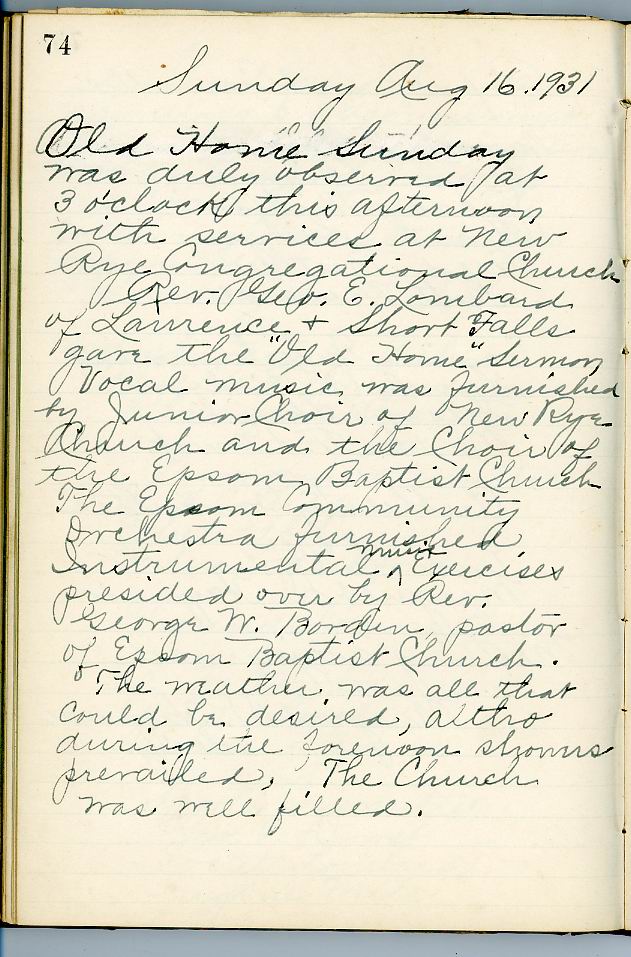 74
Sunday Aug 16. 1931
Old Home Sunday
was duly observed at
3 o'clock this afternoon
with services at New
Rye Congregational Church
Rev. Geo. E. Lombard
of Lawrence + Short Falls
gave the "Old Home" Sermon
Vocal music was furnished
by Junior Choir of New Rye
Church and the Choir of
the Epsom Baptist Church
The Epsom Community
Orchestra furnished
Instrumental music Exercises
presided over by Rev.
George W. Borden, pastor
of Epsom Baptist Church.
The weather was all that
could be desired, altho
during the forenoon showers
prevailed. The Church
was well filled.